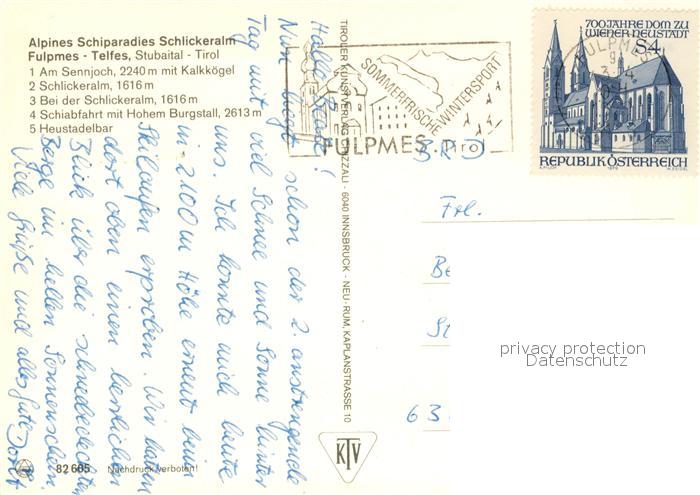 Alpines Schiparadies Schlickeralm
Fulpmes - Telfes, Stubaital - Tirol
1 Am Sennjoch, 2240 m mit Kalkkögel
2 Schlickeralm, 1616 m
3 Bei der Schlickeralm, 1616 m
4 Schiabfahrt mit Hohem Burgstall, 2613 m
5 Heustadelbar
Hallo
Nun liegt schon der 2. anstrengende
Tag mit viel Schnee und Sonne hinter
uns. Ich konnte mich heute
in 2100 m Höhe erneut beim
Skilaufen erproben. Wir hatten
dort oben einen herrlichen
Blick über die schneebedeckten
Berge im hellen Sonnenschein.
Viele Grüße und alles Gute
82 605 Nachdruck verboten!
TIROLER KUNSTVERLAG CHIZZALI - 6040 INNSBRUCK - NEU-RUM, KAPLANSTRASSE 10
KTV
SOMMERFRISCHE WINTERSPORT
FULPMES Tirol
FULPMES
700 JAHRE DOM ZU
WIENER NEUSTADT
S4
REPUBLIK ÖSTERREICH
BRD
Frl.
Be
St
63
privacy protection
Datenschutz